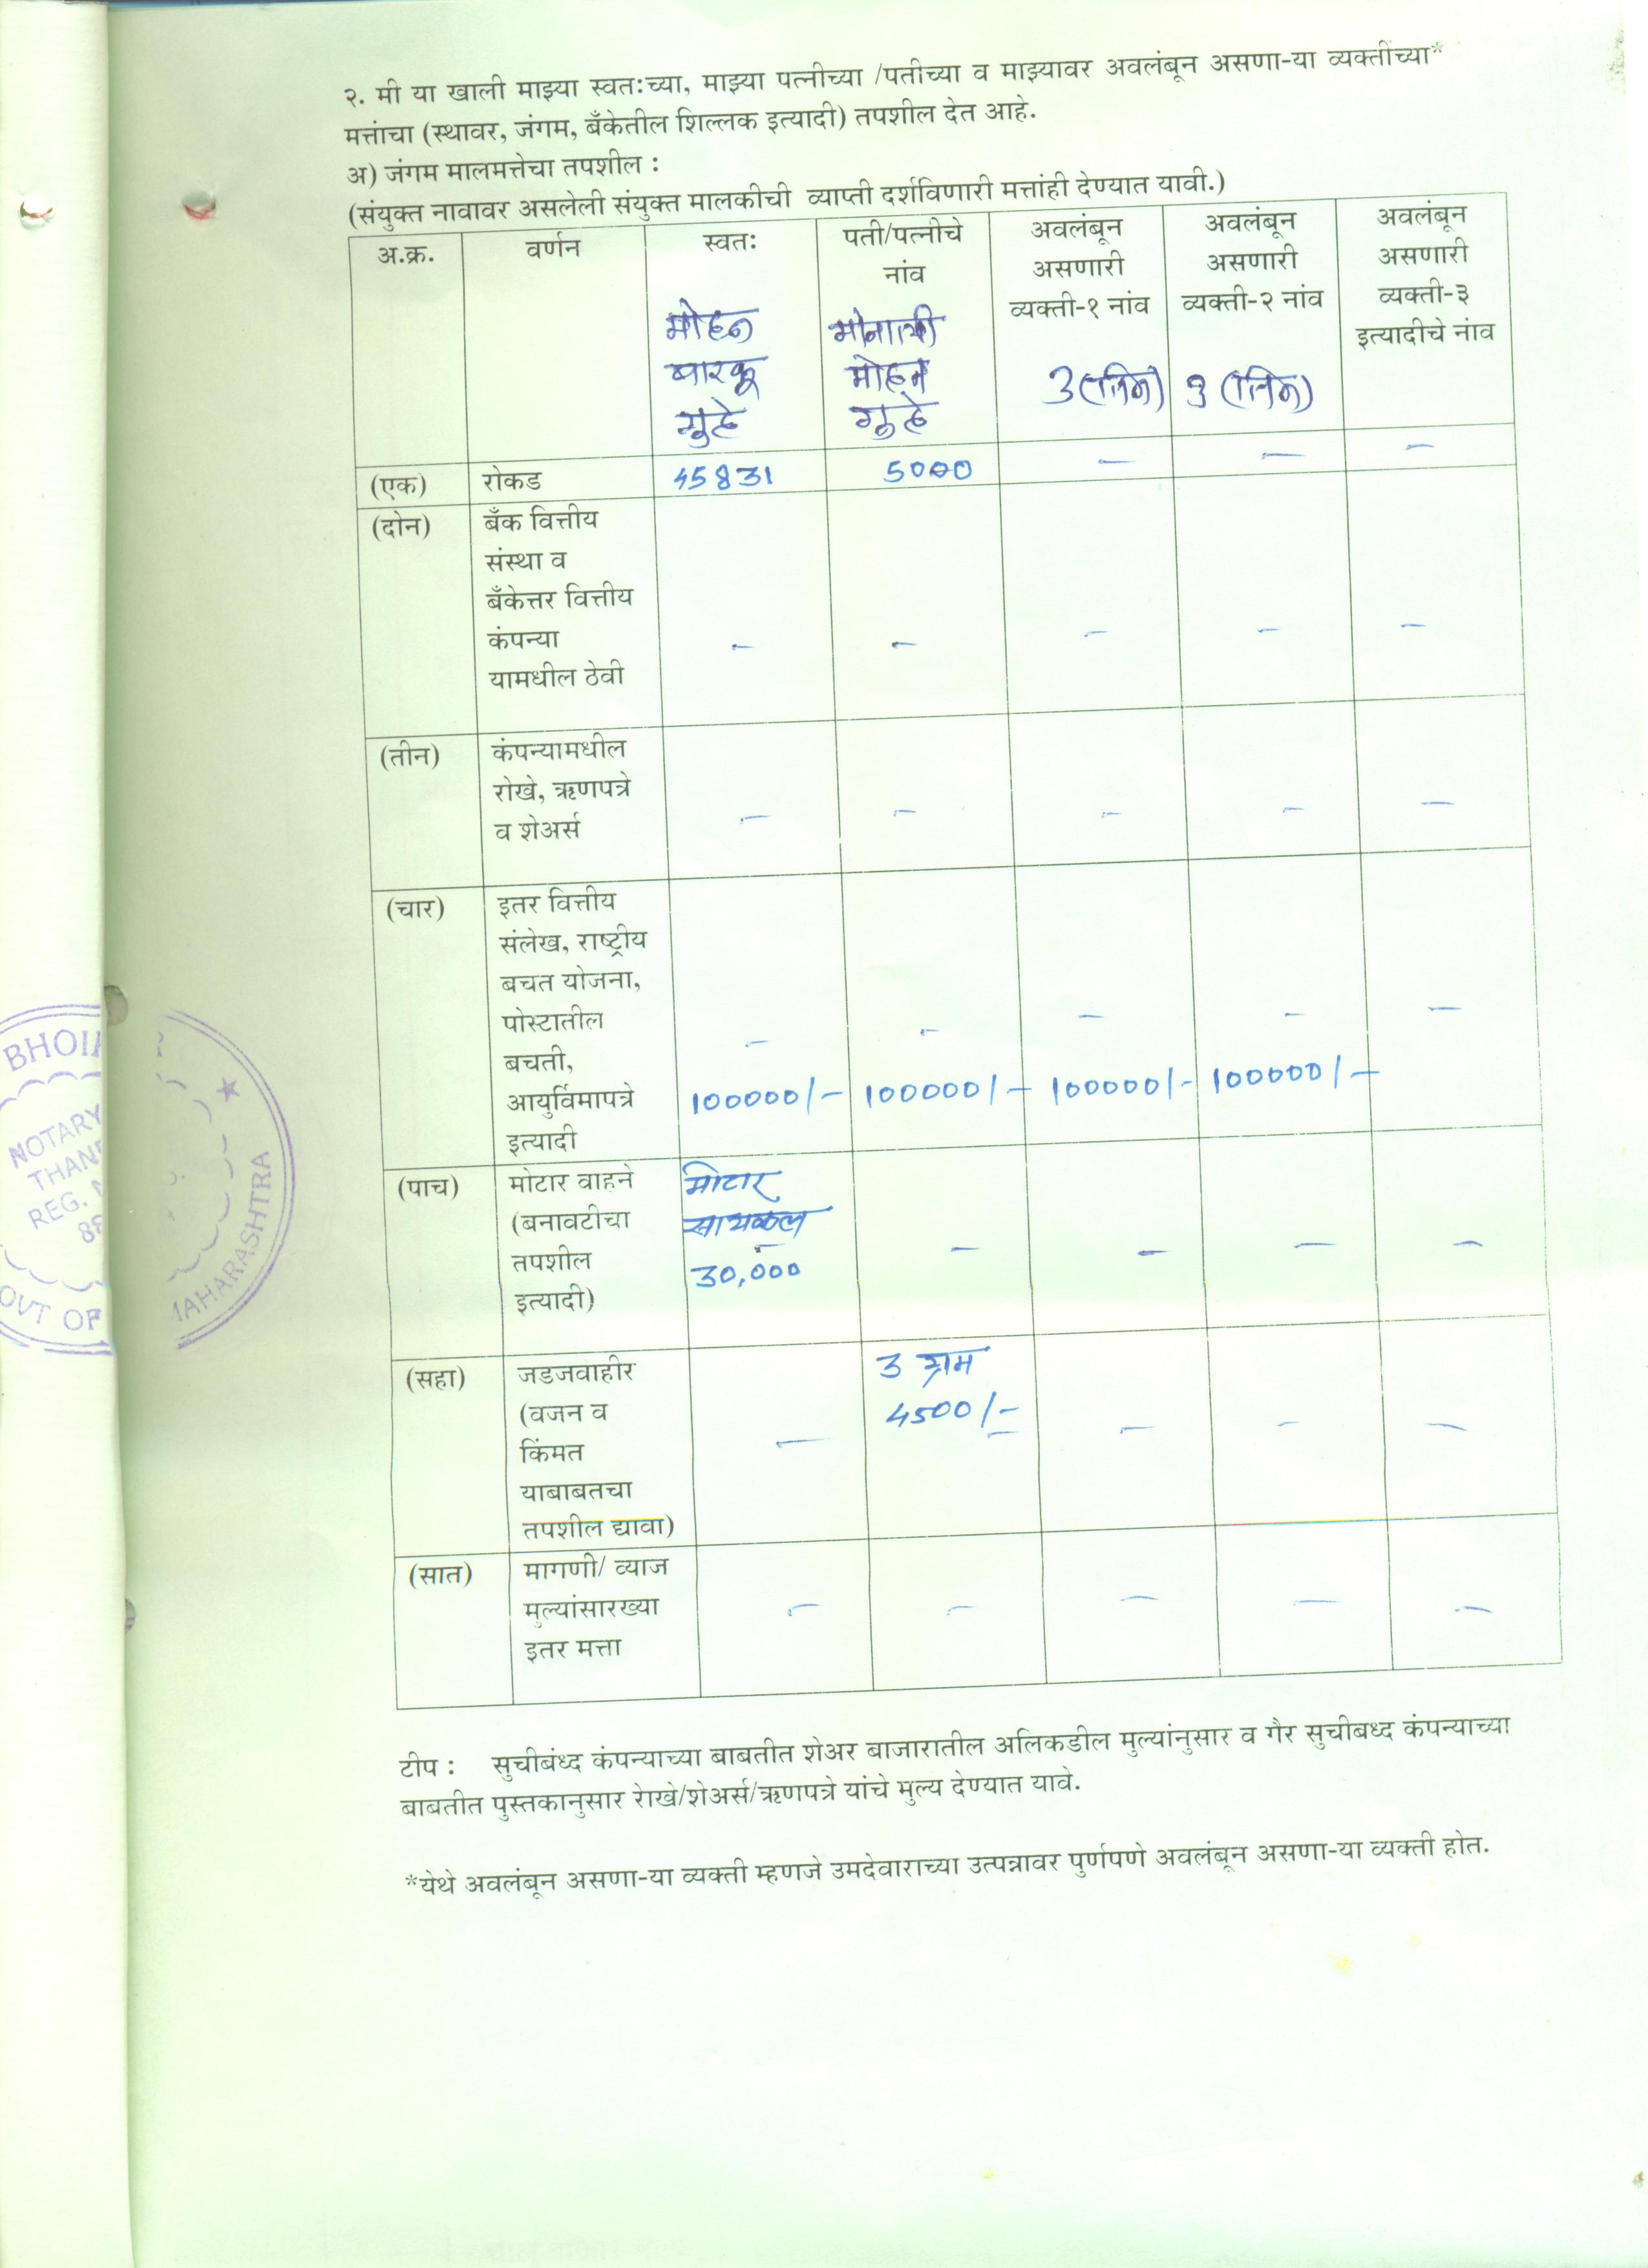 २. मी या खाली माझ्या स्वतःच्या, माझ्या पत्नीच्या /पतीच्या व माझ्यावर अवलंबून असणा-या व्यक्तींच्या*
मत्तांचा (स्थावर, जंगम, बँकेतील शिल्लक इत्यादी) तपशील देत आहे.
अ) जंगम मालमत्तेचा तपशील :
(संयुक्त नावावर असलेली संयुक्त मालकीची व्याप्ती दर्शविणारी मत्तांही देण्यात यावी.)
अ.क्र.
वर्णन
स्वतः
मोहन
बारकू
गुहे
पती/पत्नीचे
नांव
मोनाली
मोहन
गुहे
अवलंबून
असणारी
व्यक्ती-१ नांव
3
अवलंबून
असणारी
व्यक्ती-२ नांव
3
अवलंबून
असणारी
व्यक्ती-३
इत्यादीचे नांव
(एक) रोकड 45831 5000 — — —
(दोन)
बँक वित्तीय
संस्था व
बँकेत्तर वित्तीय
कंपन्या
यामधील ठेवी
— — — — —
(तीन)
कंपन्यामधील
रोखे, ऋणपत्रे
व शेअर्स
— — — — —
(चार)
इतर वित्तीय
संलेख, राष्ट्रीय
बचत योजना,
पोस्टातील
बचती,
आयुर्विमापत्रे
इत्यादी
— — — — —
100000/- 100000/- 100000/- 100000/-
(पाच)
मोटार वाहने
(बनावटीचा
तपशील
इत्यादी)
मोटार
सायकल
30,000
— — — —
(सहा)
जडजवाहीर
(वजन व
किंमत
याबाबतचा
तपशील द्यावा)
—
3 ग्राम
4500/-
— — —
(सात)
मागणी/ व्याज
मुल्यांसारख्या
इतर मत्ता
— — — — —
टीप : सुचीबंध्द कंपन्याच्या बाबतीत शेअर बाजारातील अलिकडील मुल्यांनुसार व गैर सुचीबध्द कंपन्याच्या
बाबतीत पुस्तकानुसार रोखे/शेअर्स/ऋणपत्रे यांचे मुल्य देण्यात यावे.
*येथे अवलंबून असणा-या व्यक्ती म्हणजे उमदेवाराच्या उत्पन्नावर पुर्णपणे अवलंबून असणा-या व्यक्ती होत.
BHOI
NOTARY
THAN
REG.
OVT OF
MAHARASHTRA